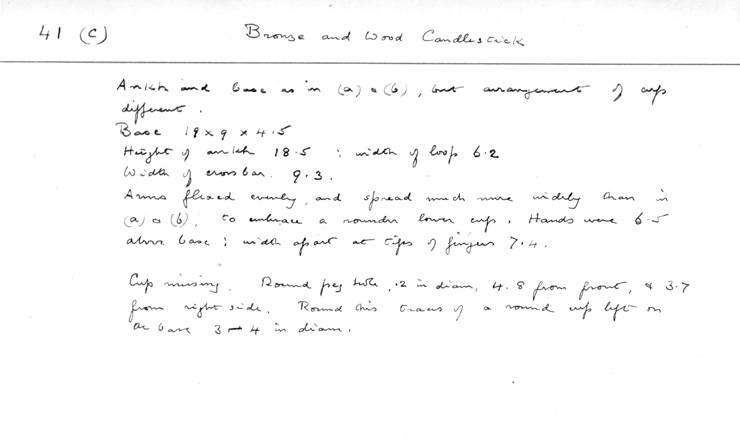 41 (c) Bronze and Wood Candlestick
Ankh and base as in (a) & (b), but arrangement of cup
different.
Base 19 x 9 x 4.5
Height of ankh 18.5 : width of loop 6.2
Width of cross bar. 9.3.
Arms flexed evenly, and spread much more widely than in
(a) & (b), to embrace a rounder lower cup. Hands were 6.5
above base; width apart at tips of fingers 7.4.
Cup missing. Round peg hole, .2 in diam, 4.8 from front, & 3.7
from right side. Round this traces of a round cup left on
the base 3–4 in diam.